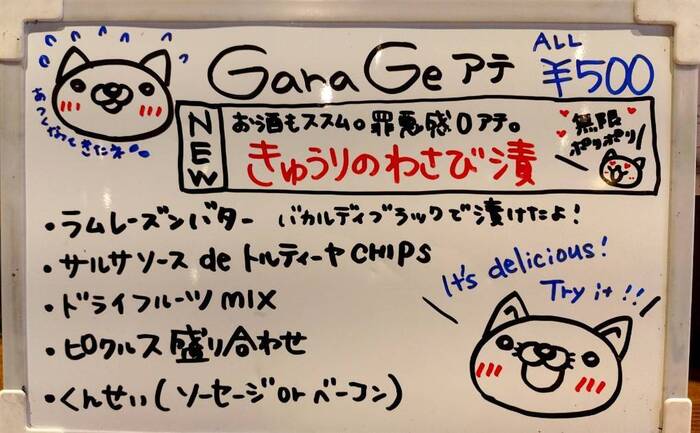 GaraGe アテ
ALL
¥500
あつくなってきたネ。。
NEW
お酒もススム。罪悪感0アテ。
きゅうりのわさび漬
無限
ポリポリ
・ラムレーズンバター バカルディブラックで漬けたよ!
・サルサソース de トルティーヤCHIPS
・ドライフルーツ MIX
・ピクルス盛り合わせ
・くんせい(ソーセージorベーコン)
It's delicious!
Try it!!